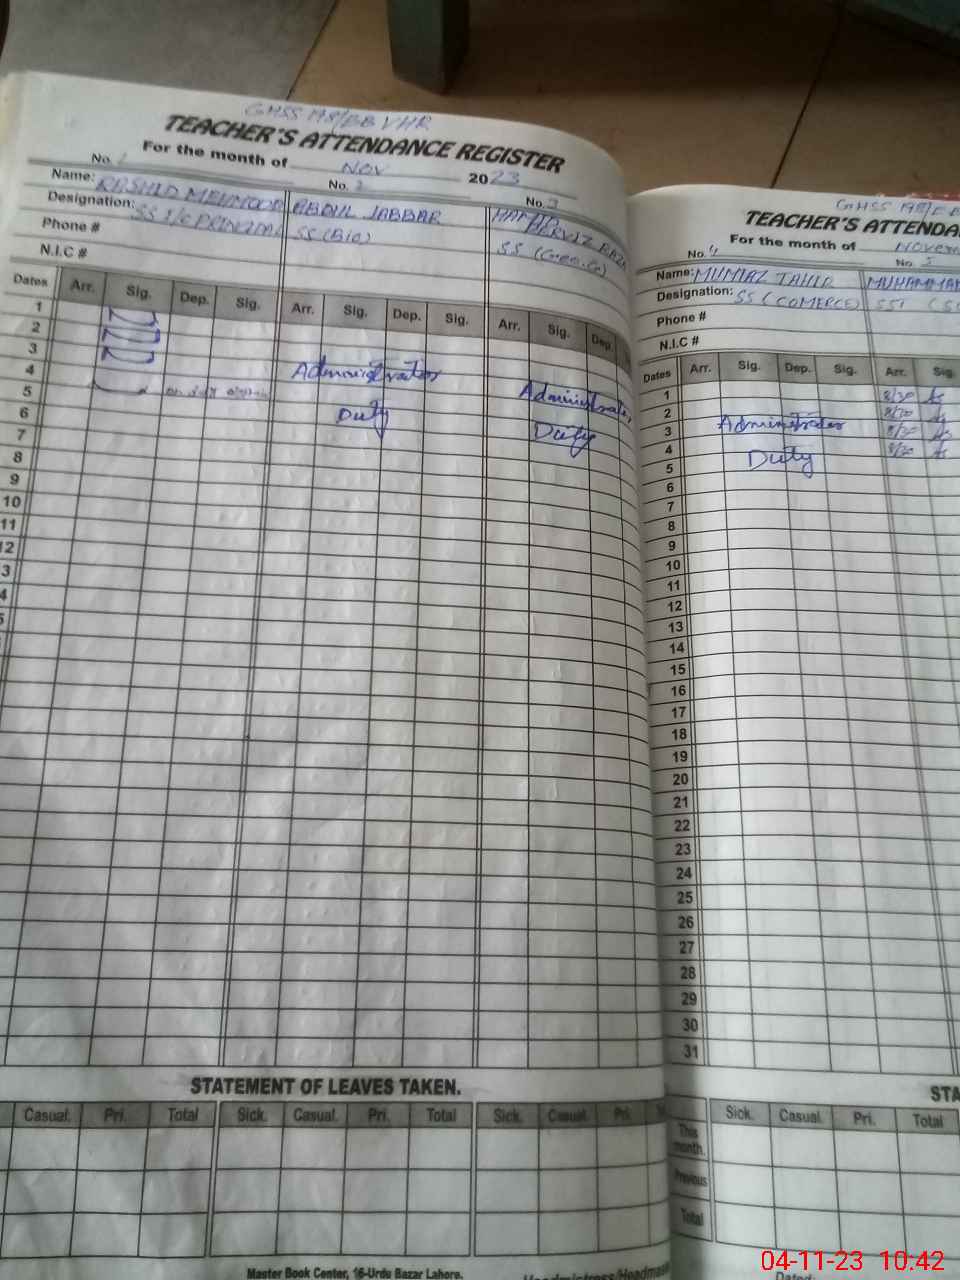 GHSS 198/EB VHR
TEACHER'S ATTENDANCE REGISTER
For the month of Nov 2023
No. 1 No. 2 No. 3
Name: RASHID MEHMOOD ABDUL JABBAR HAMID PERVIZ
Designation: SS I/C PRINCIPAL SS (BIO) SS
Phone #
N.I.C #
Dates Arr. Sig. Dep. Sig. Arr. Sig. Dep. Sig. Arr. Sig. Dep.
1
2
3
4 Administrator
5 Administrator
6 Duty
7 Duty
8
9
10
11
12
3
4
5
STATEMENT OF LEAVES TAKEN.
Casual. Pri. Total Sick. Casual. Pri. Total Sick. Casual. Pri.
Master Book Center, 16-Urdu Bazar Lahore.
Headmistress/Headmas
GHSS 198/E
TEACHER'S ATTENDA
For the month of Novem
No. 4 No. 5
Name: MUMTAZ TAHIR MUHAMMAD
Designation: SS (COMERCE) SST
Phone #
N.I.C #
Dates Arr. Sig. Dep. Sig. Arr. Sig.
1 8/30
2
3 Administrator 8/30
4 8/30
5 Duty
6
7
8
9
10
11
12
13
14
15
16
17
18
19
20
21
22
23
24
25
26
27
28
29
30
31
STA
Sick. Casual. Pri. Total
This month.
Previous
Total
Dated:
04-11-23 10:42